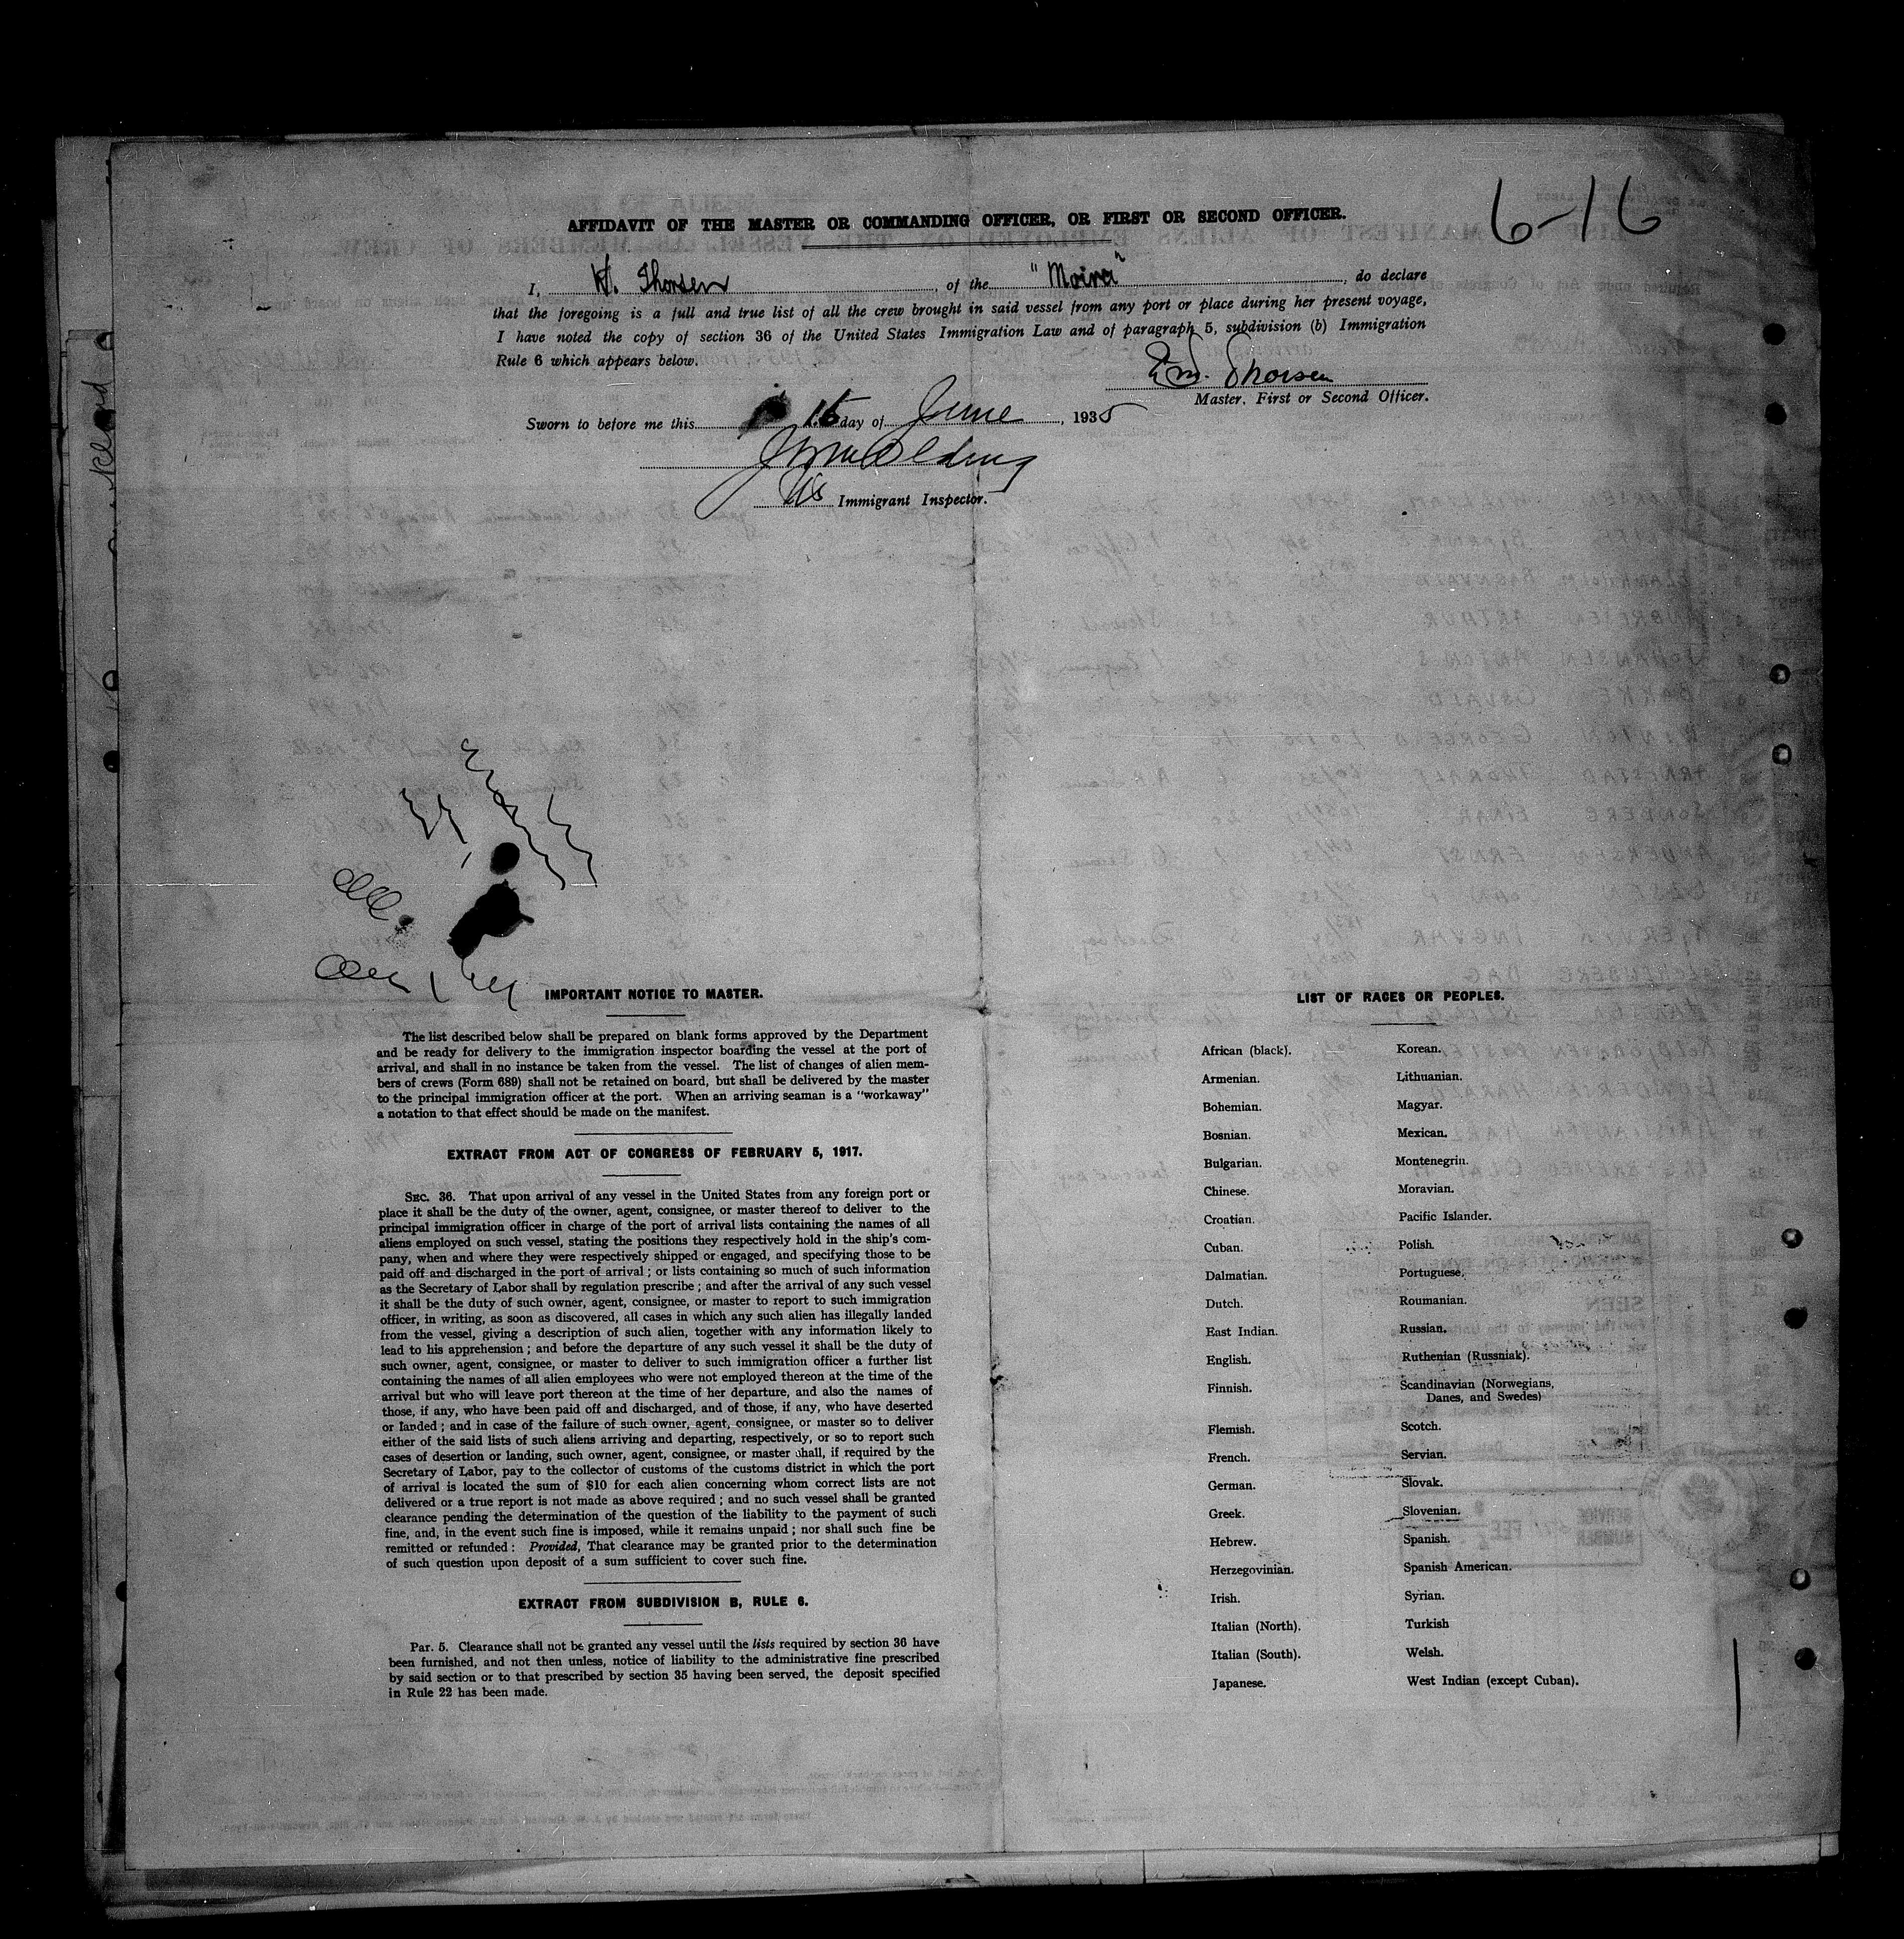 6-16
AFFIDAVIT OF THE MASTER OR COMMANDING OFFICER, OR FIRST OR SECOND OFFICER.
I, Thorsen, of the "Moira", do declare
that the foregoing is a full and true list of all the crew brought in said vessel from any port or place during her present voyage,
I have noted the copy of section 36 of the United States Immigration Law and of paragraph 5, subdivision (b) Immigration
Rule 6 which appears below.
Thorsen
Master, First or Second Officer.
Sworn to before me this 16 day of June, 1935
US Immigrant Inspector.
IMPORTANT NOTICE TO MASTER.
The list described below shall be prepared on blank forms approved by the Department
and be ready for delivery to the immigration inspector boarding the vessel at the port of
arrival, and shall in no instance be taken from the vessel. The list of changes of alien mem-
bers of crews (Form 689) shall not be retained on board, but shall be delivered by the master
to the principal immigration officer at the port. When an arriving seaman is a "workaway"
a notation to that effect should be made on the manifest.
EXTRACT FROM ACT OF CONGRESS OF FEBRUARY 5, 1917.
SEC. 36. That upon arrival of any vessel in the United States from any foreign port or
place it shall be the duty of the owner, agent, consignee, or master thereof to deliver to the
principal immigration officer in charge of the port of arrival lists containing the names of all
aliens employed on such vessel, stating the positions they respectively hold in the ship's com-
pany, when and where they were respectively shipped or engaged, and specifying those to be
paid off and discharged in the port of arrival; or lists containing so much of such information
as the Secretary of Labor shall by regulation prescribe; and after the arrival of any such vessel
it shall be the duty of such owner, agent, consignee, or master to report to such immigration
officer, in writing, as soon as discovered, all cases in which any such alien has illegally landed
from the vessel, giving a description of such alien, together with any information likely to
lead to his apprehension; and before the departure of any such vessel it shall be the duty of
such owner, agent, consignee, or master to deliver to such immigration officer a further list
containing the names of all alien employees who were not employed thereon at the time of the
arrival but who will leave port thereon at the time of her departure, and also the names of
those, if any, who have been paid off and discharged, and of those, if any, who have deserted
or landed; and in case of the failure of such owner, agent, consignee, or master so to deliver
either of the said lists of such aliens arriving and departing, respectively, or so to report such
cases of desertion or landing, such owner, agent, consignee, or master shall, if required by the
Secretary of Labor, pay to the collector of customs of the customs district in which the port
of arrival is located the sum of $10 for each alien concerning whom correct lists are not
delivered or a true report is not made as above required; and no such vessel shall be granted
clearance pending the determination of the question of the liability to the payment of such
fine, and, in the event such fine is imposed, while it remains unpaid; nor shall such fine be
remitted or refunded: Provided, That clearance may be granted prior to the determination
of such question upon deposit of a sum sufficient to cover such fine.
EXTRACT FROM SUBDIVISION B, RULE 6.
Par. 5. Clearance shall not be granted any vessel until the lists required by section 36 have
been furnished, and not then unless, notice of liability to the administrative fine prescribed
by said section or to that prescribed by section 35 having been served, the deposit specified
in Rule 22 has been made.
LIST OF RACES OR PEOPLES.
African (black).
Armenian.
Bohemian.
Bosnian.
Bulgarian.
Chinese.
Croatian.
Cuban.
Dalmatian.
Dutch.
East Indian.
English.
Finnish.
Flemish.
French.
German.
Greek.
Hebrew.
Herzegovinian.
Irish.
Italian (North).
Italian (South).
Japanese.
Korean.
Lithuanian.
Magyar.
Mexican.
Montenegrin.
Moravian.
Pacific Islander.
Polish.
Portuguese.
Roumanian.
Russian.
Ruthenian (Russniak).
Scandinavian (Norwegians,
Danes, and Swedes)
Scotch.
Servian.
Slovak.
Slovenian.
Spanish.
Spanish American.
Syrian.
Turkish
Welsh.
West Indian (except Cuban).